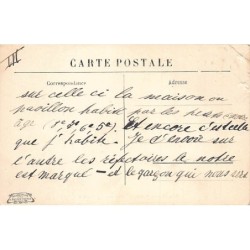 CARTE POSTALE
Correspondance Adresse
sur celle ci la maison ou
pavillon habité par les
age (1e 3e 6e 5e) Et encore
que j'habite. Je t'envoie sur
l'autre les réfectoires le notre
est marqué - et le garçon qui nous sers